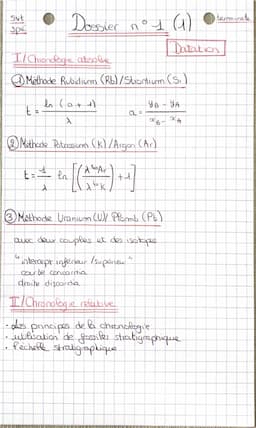 SVT
spé
Dossier n°1 (1)
terminale
Datation
I/ Chronologie absolue
① Méthode Rubidium (Rb)/Strontium (Sr)
t = ln (a + 1) / λ
a = yB - yA / xB - xA
② Méthode Potassium (K)/Argon (Ar)
t = 1/λ ln [( / λ⁴⁰K) + 1]
③ Méthode Uranium (U)/ Plomb (Pb)
avec deux couples et des isotopes
"intercept inférieur/supérieur"
courbe concordia
droite discordia
II/ Chronologie relative
· les principes de la chronologie
· utilisation de fossiles stratigraphique
· l'échelle stratigraphique